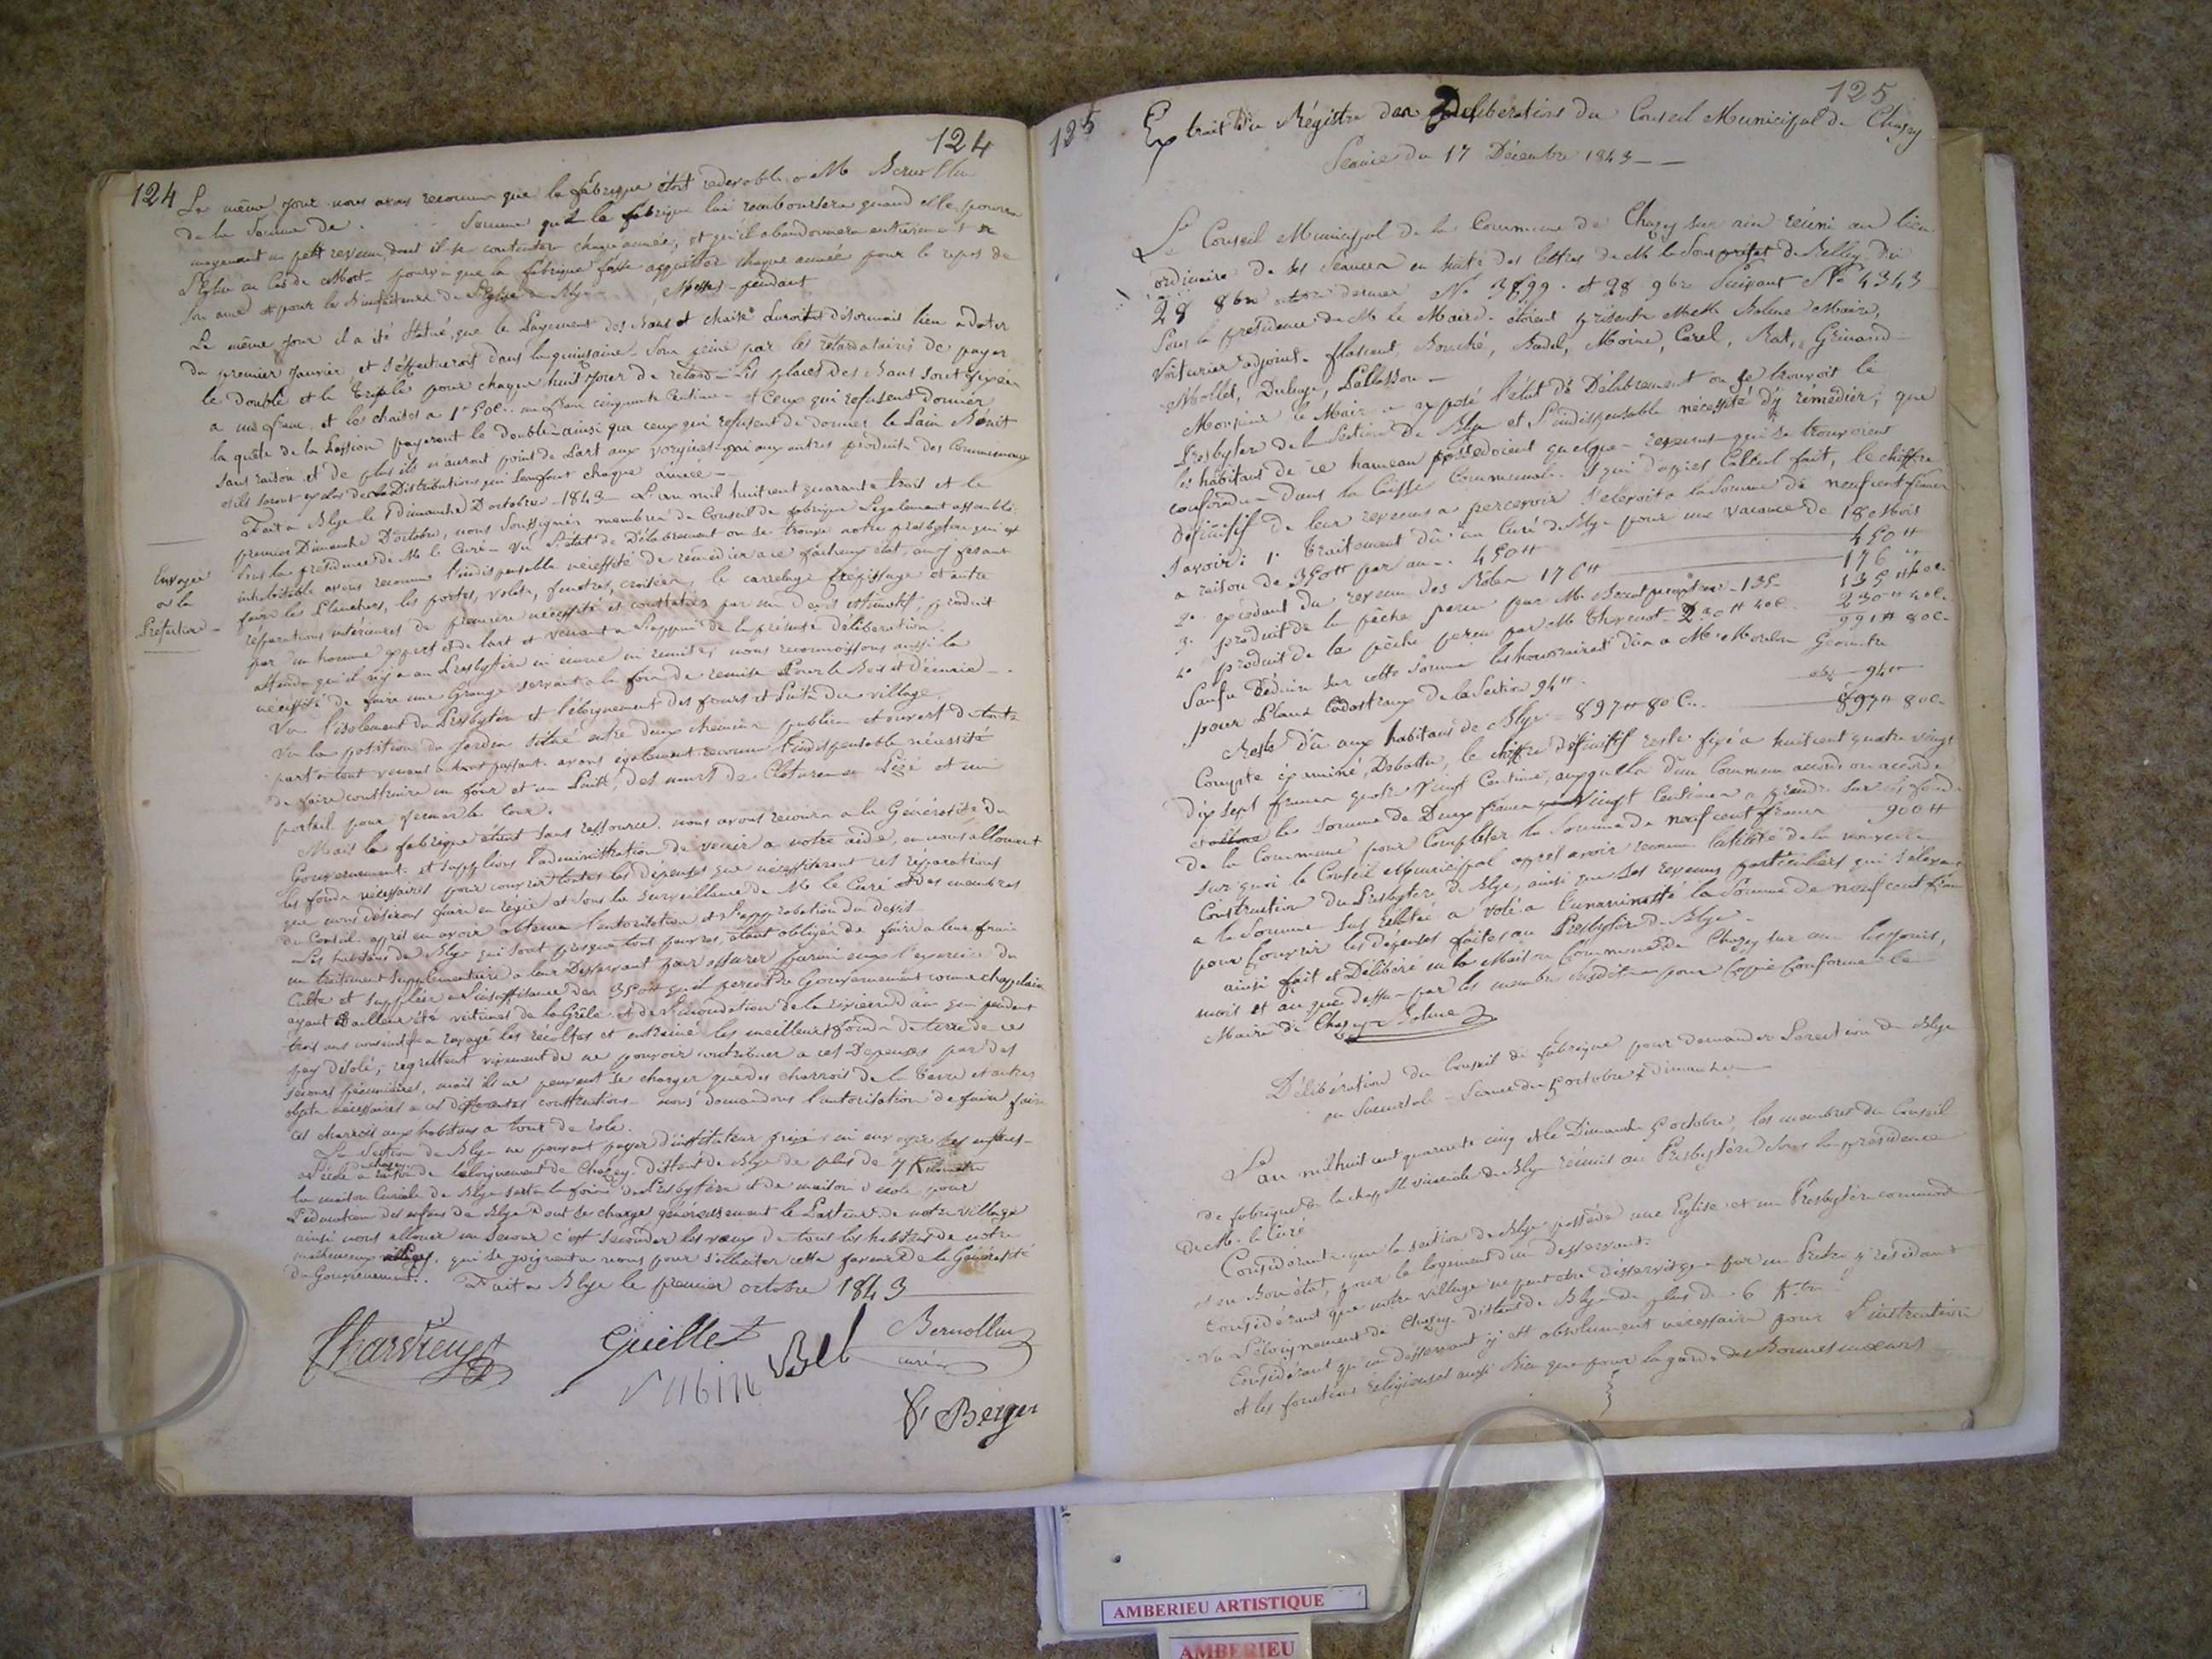 124
124
Le même jour nous avons reconnu que la fabrique étoit redevable a M Bernollin
de la Somme de . Somme que la fabrique lui remboursera quand elle pourra
moyenant un petit revenu, dont il se contentera chaque année, et qu'il abandonnera entièrement a
l'Eglise au Cas de Mort pourvu que la fabrique fasse acquitter chaque année pour le repos de
son ame et pour les Bienfaiteurs de l'Eglise de Blye Messes pendant
Le même jour il a été Statué, que le Payement des Bans et chaises auroit désormais lieu a dater
du premier Janvier et s'effectueroit dans la quinzaine Sous peine par les retardataires de payer
le double et le triple pour chaque huit jour de retard Les places des Bans sont fixées
a un franc et les chaises a 1 f 50 c. un franc cinquante Centimes et Ceux qui refusent donner
la quête de la Passion payeront le double ainsi que ceux qui refusent de donner le Pain Bénit
sans raison et de plus ils n'auront point de Part aux aux autres produits des Communaux
et ils seront exclus de la Distributions qui Se font chaque année
Fait a Blye le 1 dimanche D'octobre 1843 L'an mil huit cent quarante trois et le
premier Dimanche D'octobre, nous Soussignés membres du Conseil de fabrique Légalement assemblé
Sous la présidence de Mr le Curé Vu l'état de Délabrement ou se trouve notre presbytère qui est
inhabitable avons reconnu l'indispensable nécessité de remédier a ce fâcheux état, en y fesant
faire les Planchers, les portes, volets, fenêtres, croisées, le carrelage crépissage et autre
réparations intérieures de première nécessité et constatées par un Devis estimatif, produit
par un homme expert de l'art et venant a l'appui de la présente délibération.
attendu qu'il n'y a au Presbytère ni écurie ni remise, nous reconnoissons aussi la
nécessité de faire une Grange servant a la fois de remise Pour le Bois et d'écurie
Vu l'isolement du Presbytère et l'éloignement des fours et Puits du village
Vu la position du Jardin Situé entre deux chemins publics et ouvert de toute
part a tout venant et passant avons également reconnu l'indispensable nécessité
de faire construire un four et un Puits, des murs de Clotures en Pizé et un
portail pour fermer la Cour.
Mais la fabrique étant sans ressource nous avons recours a la Générosité du
Gouvernement et supplions l'administration de venir a notre aide, en nous allouant
les fonds nécessaires pour couvrir toutes les dépenses que nécessiteront ces réparations
que nous désirons faire en régie et sous la surveillance de Mr le Curé et des membres
du Conseil après en avoir obtenu l'autorisation et l'approbation du devis
Les habitans de Blye qui sont presque tous pauvres étant obligés de faire a leur frais
un traitement Supplémentaire a leur Desservant pour assurer parmi eux l'exercice du
Culte et suppléer a l'insuffisance des 350 tt qu'il percoit du Gouvernement comme chappelain
ayant D'ailleurs été victimes de la Grêle et de l'inondation de la rivière d'ain qui pendant
trois ans a ravagé les récoltes et entrainé les meilleurs fonds de terre de ce
pays désolé, regrettent vivement de ne pouvoir contribuer a ces Dépenses par des
secours pécuniaires, mais ils ne peuvent se charger que des charrois de la terre et autres
objets nécessaires a ces différentes constructions nous demandons l'autorisation de faire faire
ces charrois aux habitans a tour de role.
La Section de Blye ne pouvant payer d'instituteur privé ni envoyer les enfans
a l'école a chazey raison de l'éloignement de Chazey distant de Blye de plus de 7 Kilomètre
la maison Curiale de Blye sert a la fois de Presbytère et de maison d'école pour
l'éducation des enfans de Blye dont se charge généreusement le Pasteur de notre village
ainsi nous allouer un Secours c'est seconder les vœux de tous les habitans de notre
malheureux village, qui se joignent a nous pour solliciter cette faveur de la Générosité
du Gouvernement. Fait a Blye le premier octobre 1843
Envoyée
a la
Préfecture
Guillet
Bel
Bernollin
curé
Berger
125
125
Extrait du Régistre des Deliberations du Conseil Municipal de Chazey
Séance du 17 Décembre 1843
Le Conseil Municipal de la Commune de Chazey sur ain réuni au lieu
ordinaire de ses Séances en suite des lettres de Mr le Sous préfet de Belley du
28 8bre dernier No 3899 et 28 9bre Suivant No 4343
Sous la présidence de Mr le Maire étoient présents MM Bolme Maire,
Voiturier adjoint Bouché, Badel, Moine, Carel, Rat, Grinand
Mollet, Duluye, Pellasson
Monsieur le Maire a exposé l'état de Délabrement ou se trouvoit le
Presbytère de la Section de Blye et l'indispensable nécessité d'y rémédier, que
les habitans de ce hameau possedoient quelque revenus qui se trouvoient
confondus dans la Caisse Communale et qui d'après Calcul fait, le chiffre
Définitif de leur revenus a percevoir s'élevoit a la Somme de neuf cent francs
Savoir: 1° Traitement dû au Curé de Blye pour une vacance de 18 Mois
a raison de 350tt par an . 450tt 450tt
2° excédant du revenu des Roles 176tt 176 tt
3° produit de la pêche perçu par Mr 135 135tt 40c.
4° produit de la pêche perçu par Mr Thevenot 230tt 40c. 230tt 40c.
991tt 80c.
Sauf a Déduire sur cette Somme les honoraires dûs a Mr Moulin Géomètre
pour Plans Cadastraux de la Section 94tt. 94tt
Reste Dû aux habitans de Blye 897tt 80 C. 897tt 80c.
Compte éxaminé, Débattu, le chiffre définitif reste fixé a huit cent quatre vingt
dix sept francs quatre Vingt Centimes, auxquels d'un Commun accord on accorde
et alloue la somme de Deux francs Vingt Centimes a prendre sur les fonds
de la Commune pour Completer la Somme de neuf cent francs 900tt
Sur quoi le Conseil Municipal après avoir reconnu l'utilité de la nouvelle
Construction du Presbytère de Blye, ainsi que ses revenus particuliers qui s'élevent
a la Somme Sus relatée a voté a l'unanimité la Somme de neuf cent fran
pour Couvrir les dépenses faites au Presbytère de Blye
ainsi fait et Délibéré en la Maison Commune de Chazey sur ain les jours,
mois et an que dessus par les membres susdits pour Copie Conforme le
Maire de Chazey Bolme
Délibération du Conseil de fabrique pour demander l'erection de Blye
en Succursale Séance du 5 octobre dimanche
L'an mil huit cent quarante cinq et le Dimanche 5 octobre, les membres du Conseil
de fabrique de la chappelle vicariale de Blye réunis au Presbytère sous la présidence
de Mr le Curé
Considérant que la section de Blye possède une Eglise et un Presbytère commode
et en Bon état, pour le logement d'un desservant.
Considérant que notre village ne peut etre desservi que par un Prêtre y résidant
Vu l'éloignement de Chazey distant de Blye de plus de 6 Ktre
Considérant qu'un desservant y est absolument nécessaire pour l'instruction
et les fonctions religieuses aussi bien que pour la garde des Bonnes mœurs
AMBERIEU ARTISTIQUE
AMBERIEU